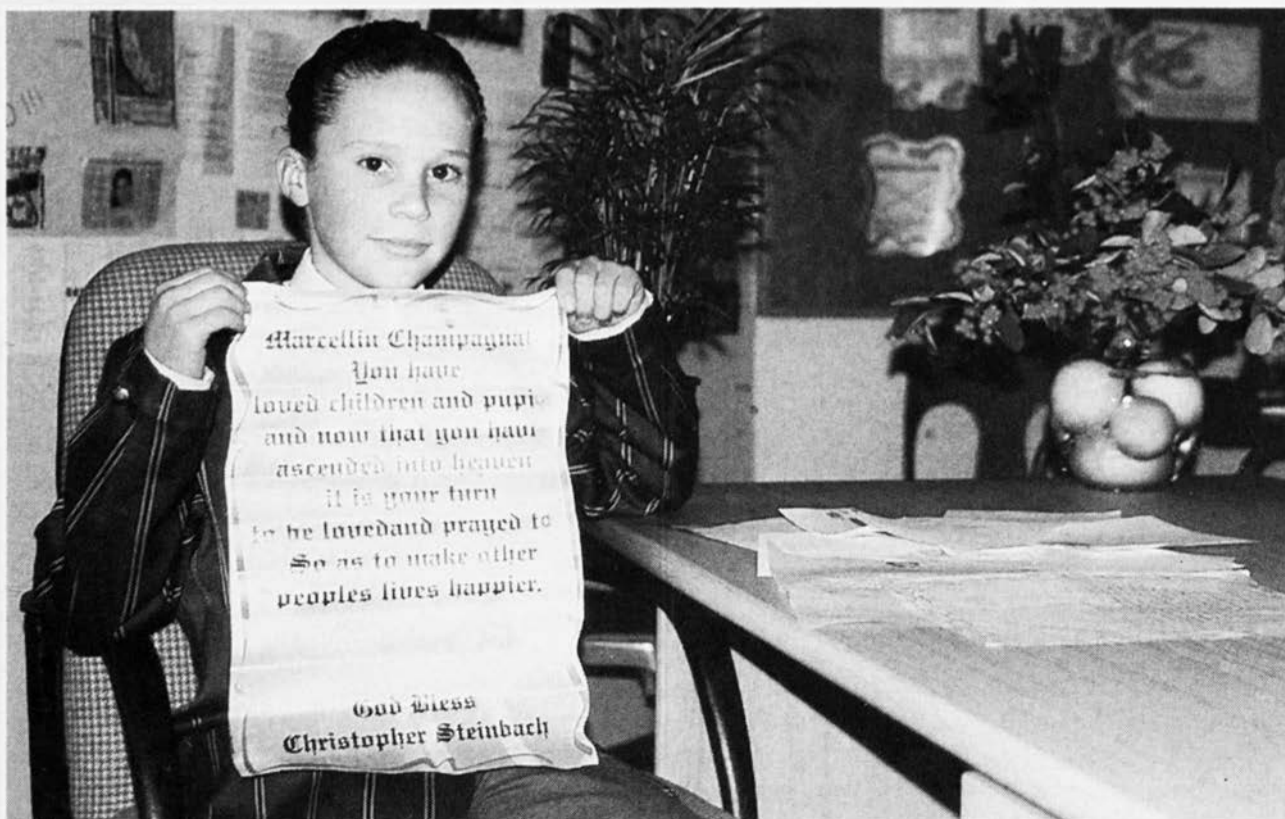 Marcellin Champagnat
You have
loved children and pupi
and now that you have
ascended into heaven
it is your turn
to be lovedand prayed to
So as to make other
peoples lives happier.
God Bless
Christopher Steinbach